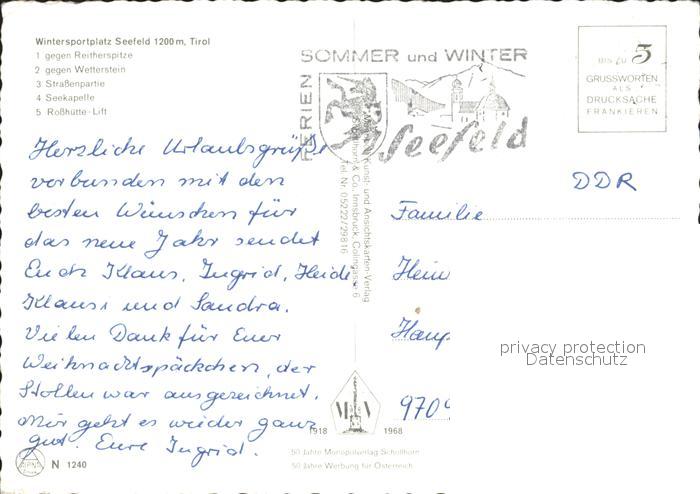 Wintersportplatz Seefeld 1200 m, Tirol
1 gegen Reitherspitze
2 gegen Wetterstein
3 Straßenpartie
4 Seekapelle
5 Roßhütte-Lift
FERIEN
SOMMER und WINTER
Seefeld
BIS ZU 5
GRUSSWORTEN
ALS
DRUCKSACHE
FRANKIEREN
Herzliche Urlaubsgrüße
verbunden mit den
besten Wünschen für
das neue Jahr sendet
Euch Klaus, Ingrid, Heide
Klausi und Sandra.
Vielen Dank für Euer
Weihnachtspäckchen, der
Stollen war ausgezeichnet.
Mir geht es wieder ganz
gut. Eure Ingrid.
Kunst- und Ansichtskarten-Verlag
& Co., Innsbruck, Colingasse 6
Tel. Nr. 05222/29816
DDR
Familie
Hein
Haup
970
privacy protection
Datenschutz
1918 1968
50 Jahre Monopolverlag Schöllhorn
50 Jahre Werbung für Österreich
N 1240